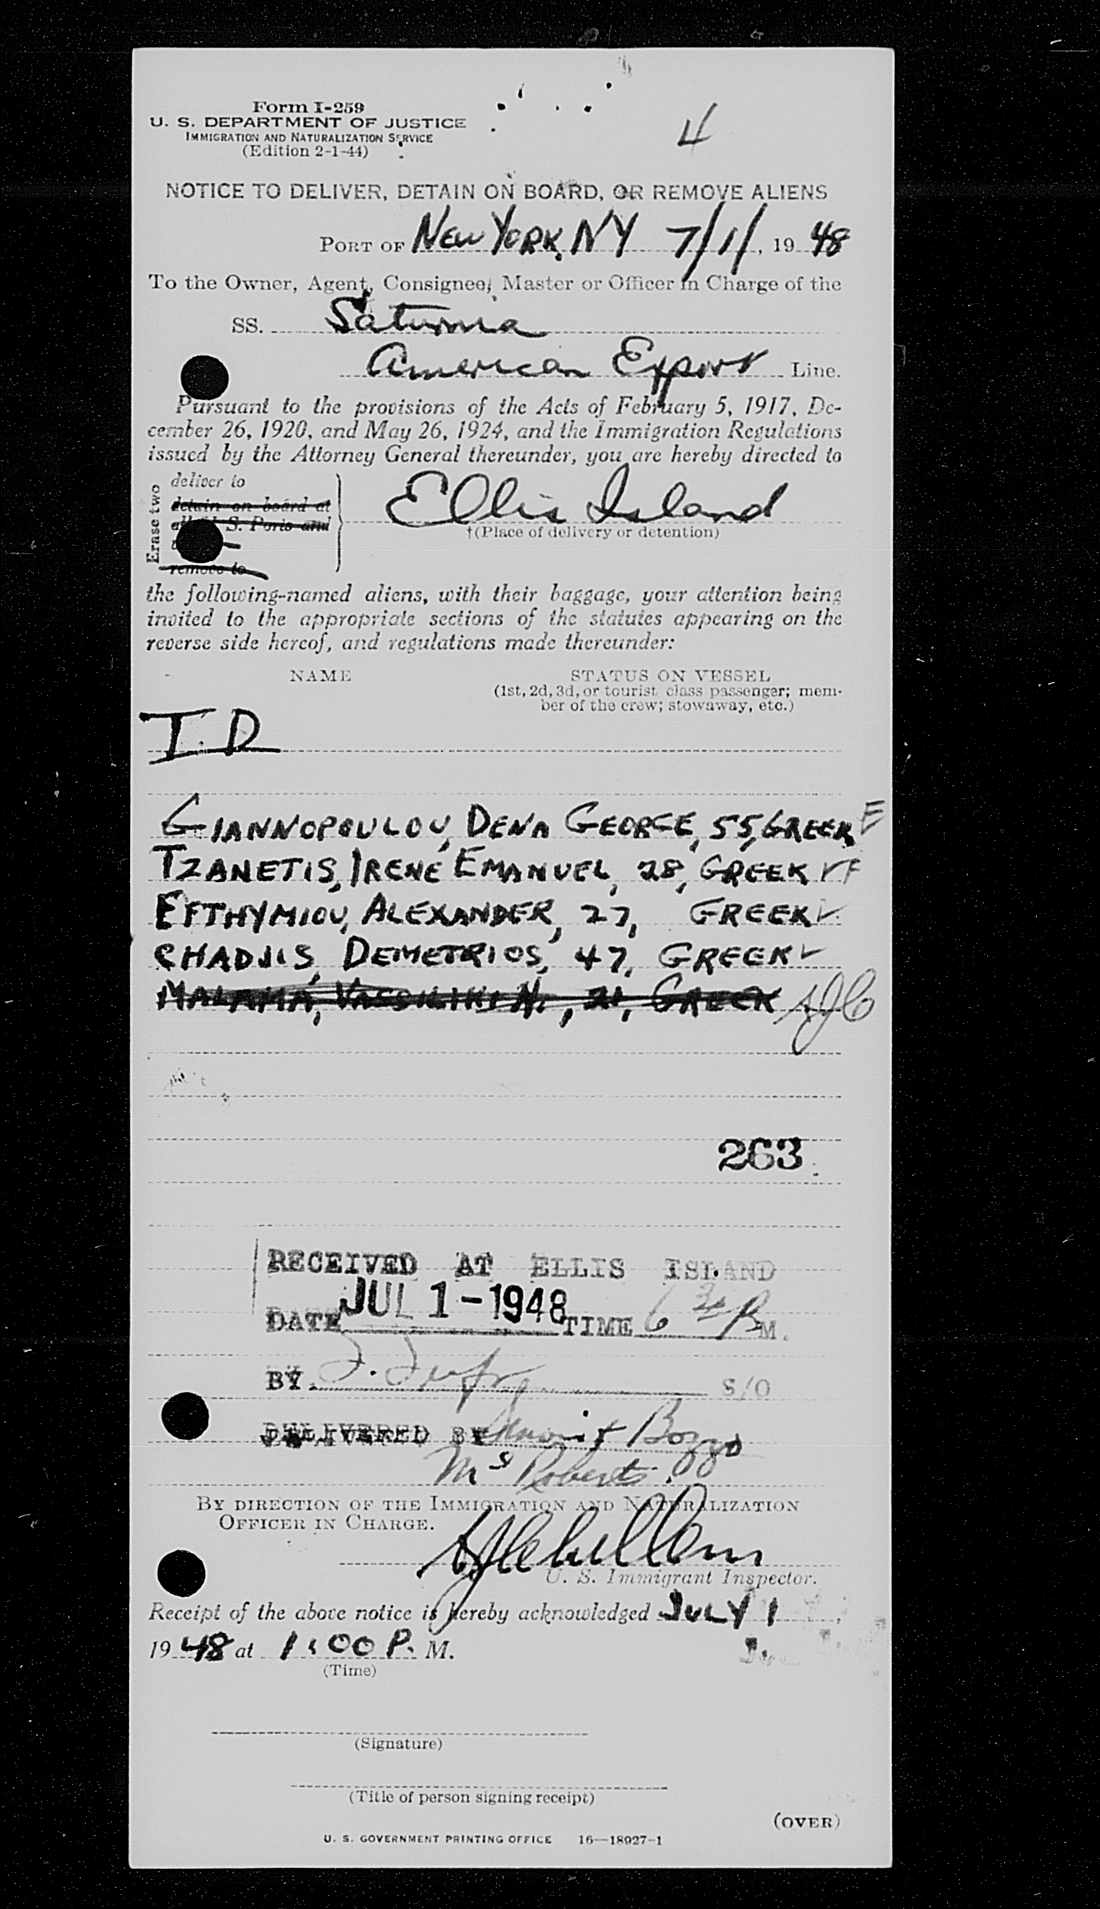 Form I-259
U. S. DEPARTMENT OF JUSTICE
IMMIGRATION AND NATURALIZATION SERVICE
(Edition 2-1-44)
4
NOTICE TO DELIVER, DETAIN ON BOARD, OR REMOVE ALIENS
PORT OF NEW YORK, NY 7/1/, 19 48
To the Owner, Agent, Consignee, Master or Officer in Charge of the
SS. Saturnia
American Export Line.
Pursuant to the provisions of the Acts of February 5, 1917, De-
cember 26, 1920, and May 26, 1924, and the Immigration Regulations
issued by the Attorney General thereunder, you are hereby directed to
Erase two
deliver to
detain on board at
all U. S. Ports and
remove to
Ellis Island
†(Place of delivery or detention)
the following-named aliens, with their baggage, your attention being
invited to the appropriate sections of the statutes appearing on the
reverse side hereof, and regulations made thereunder:
NAME STATUS ON VESSEL
(1st, 2d, 3d, or tourist class passenger; mem-
ber of the crew; stowaway, etc.)
T.D
GIANNOPOULOU, DENA GEORGE, 55, GREEK F
TZANETIS, IRENE EMANUEL, 28, GREEK ✓ F
EFTHYMIOU, ALEXANDER, 27, GREEK ✓
CHADJIS, DEMETRIOS, 47, GREEK ✓
MALAMA, VASSILIKI N., 21, GREEK AJC
263
RECEIVED AT ELLIS ISLAND
DATE JUL 1-1948 TIME 6 30 P M.
BY S/O
DELIVERED BY & Bozzo
Roberts
BY DIRECTION OF THE IMMIGRATION AND NATURALIZATION
OFFICER IN CHARGE.
U. S. Immigrant Inspector.
Receipt of the above notice is hereby acknowledged JULY 1,
19 48 at 1:00 P. M.
(Time)
(Signature)
(Title of person signing receipt)
(OVER)
U. S. GOVERNMENT PRINTING OFFICE 16—18027-1